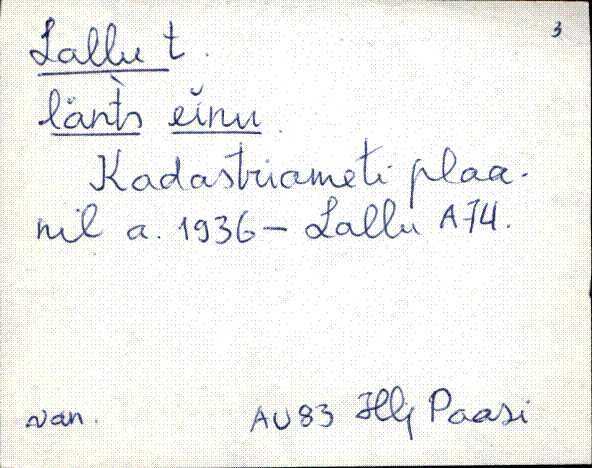 3
Lallu t.
läǹt́s eĭnu.
Kadastriameti plaa-
nil a. 1936 – Lallu A74.
van. AU83 Hlj Paasi